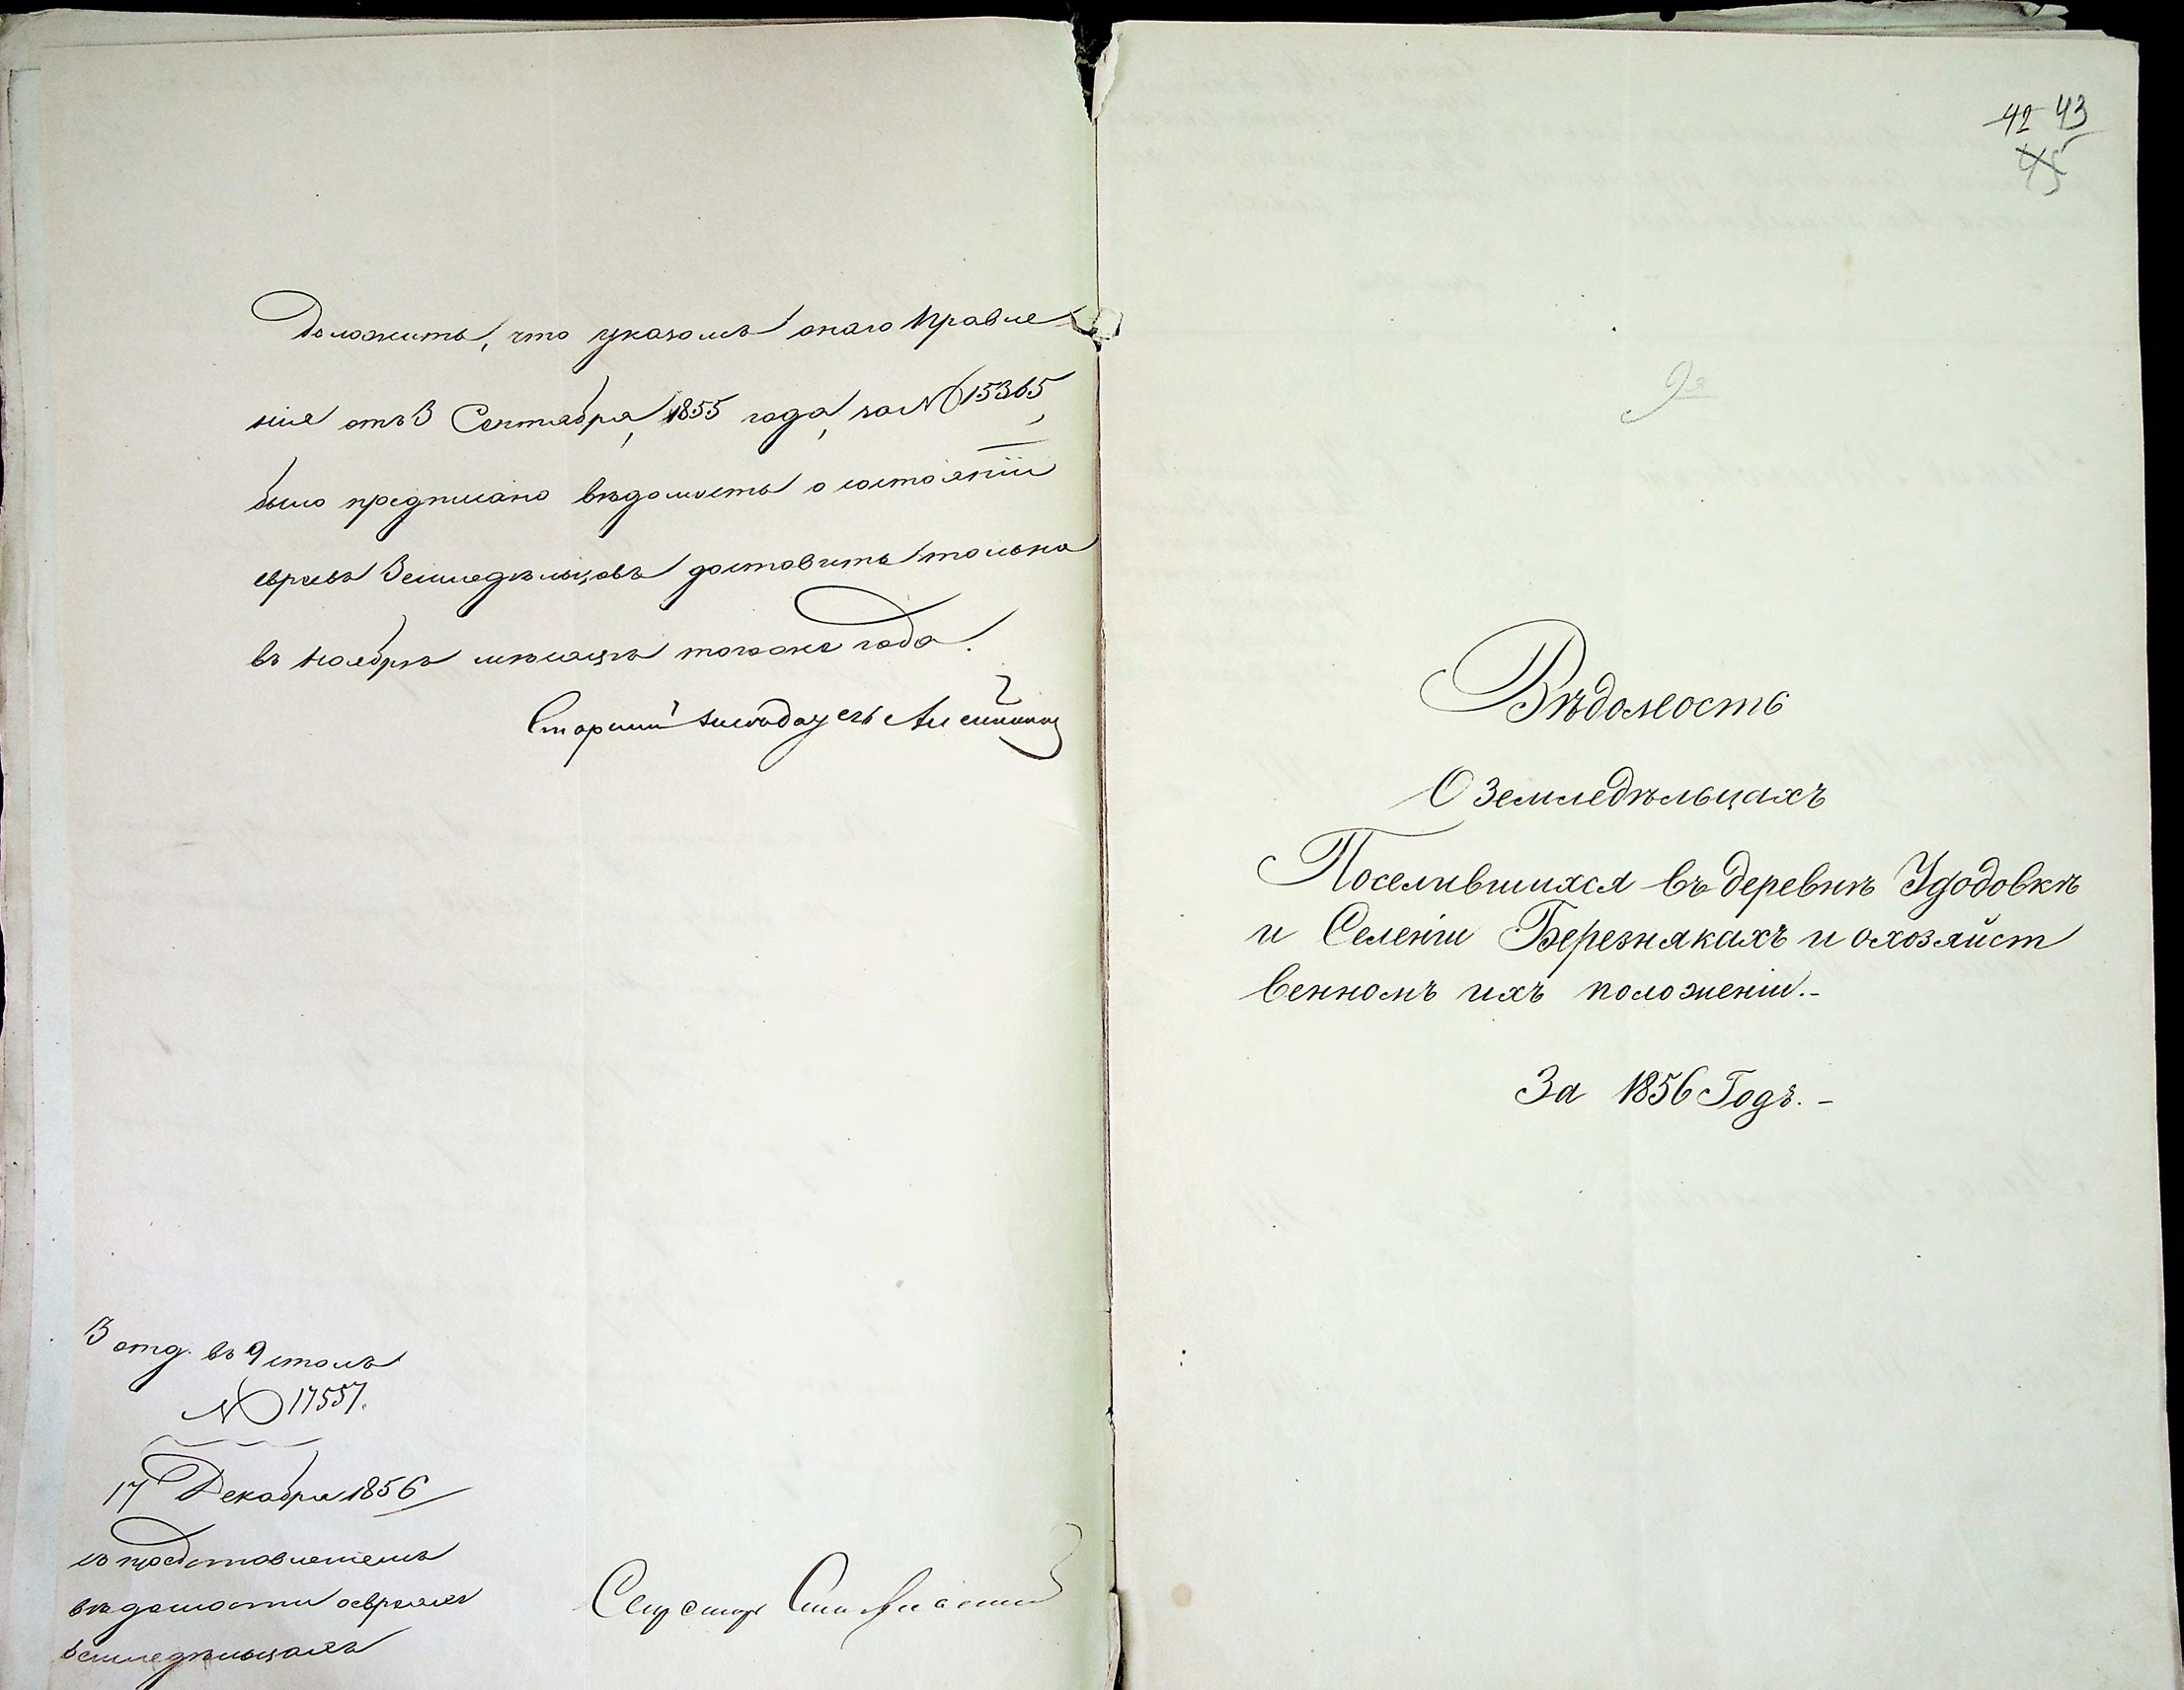 Доложить, что указомъ онаго Правле
нія отъ 3 Сентября, 1855 года, за № 15365,
было предписано вѣдомость о состояніи
евреевъ Земледѣльцовъ доставить только
въ Ноябрѣ мѣсяцѣ тогоже года.
Старшій
3 отд. въ 9 столъ
№ 17557.
17 Декабря 1856
съ представленіемъ
вѣдомости о евреяхъ
земледѣльцахъ
Секретарь
42 43
45
9я
Вѣдомость
О Земледѣльцахъ
Поселившихся въ деревнѣ Удодовкѣ
и Селеніи Березнякахъ и о хозяйст
венномъ ихъ положеніи.-
За 1856 Годъ.-